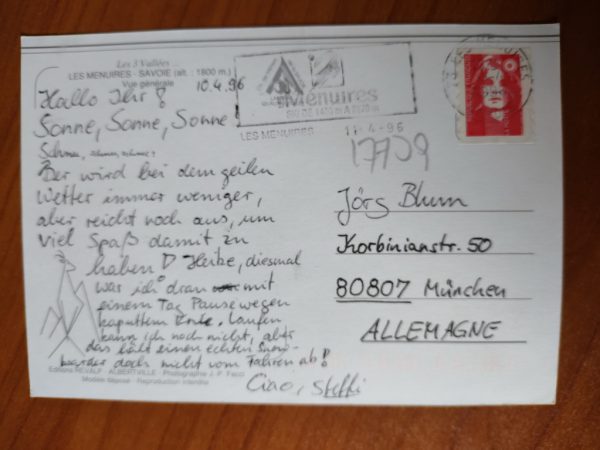 Les 3 Vallées...
LES MENUIRES - SAVOIE (alt. : 1800 m.)
Vue générale
10.4.96
Hallo Ihr!
Sonne, Sonne, Sonne!
Schnee, schnee, schnee?
Der wird bei dem geilen
Wetter immer weniger,
aber reicht noch aus, um
viel Spaß damit zu
haben :D Heike, diesmal
war ich dran mit
einem Tag Pause wegen
kaputtem Knie. Laufen
kann ich noch nicht, aber
das hält einen echten Snow-
boarder doch nicht vom Fahren ab!
Ciao, Steffi
Editions REVALP - ALBERTVILLE - Photographie J. P.
Modèle déposé - Reproduction interdite
les Menuires
SKI DE 1400 m A
LES MENUIRES
11-4-96
17709
Jörg Blum
Korbinianstr. 50
80807 München
ALLEMAGNE